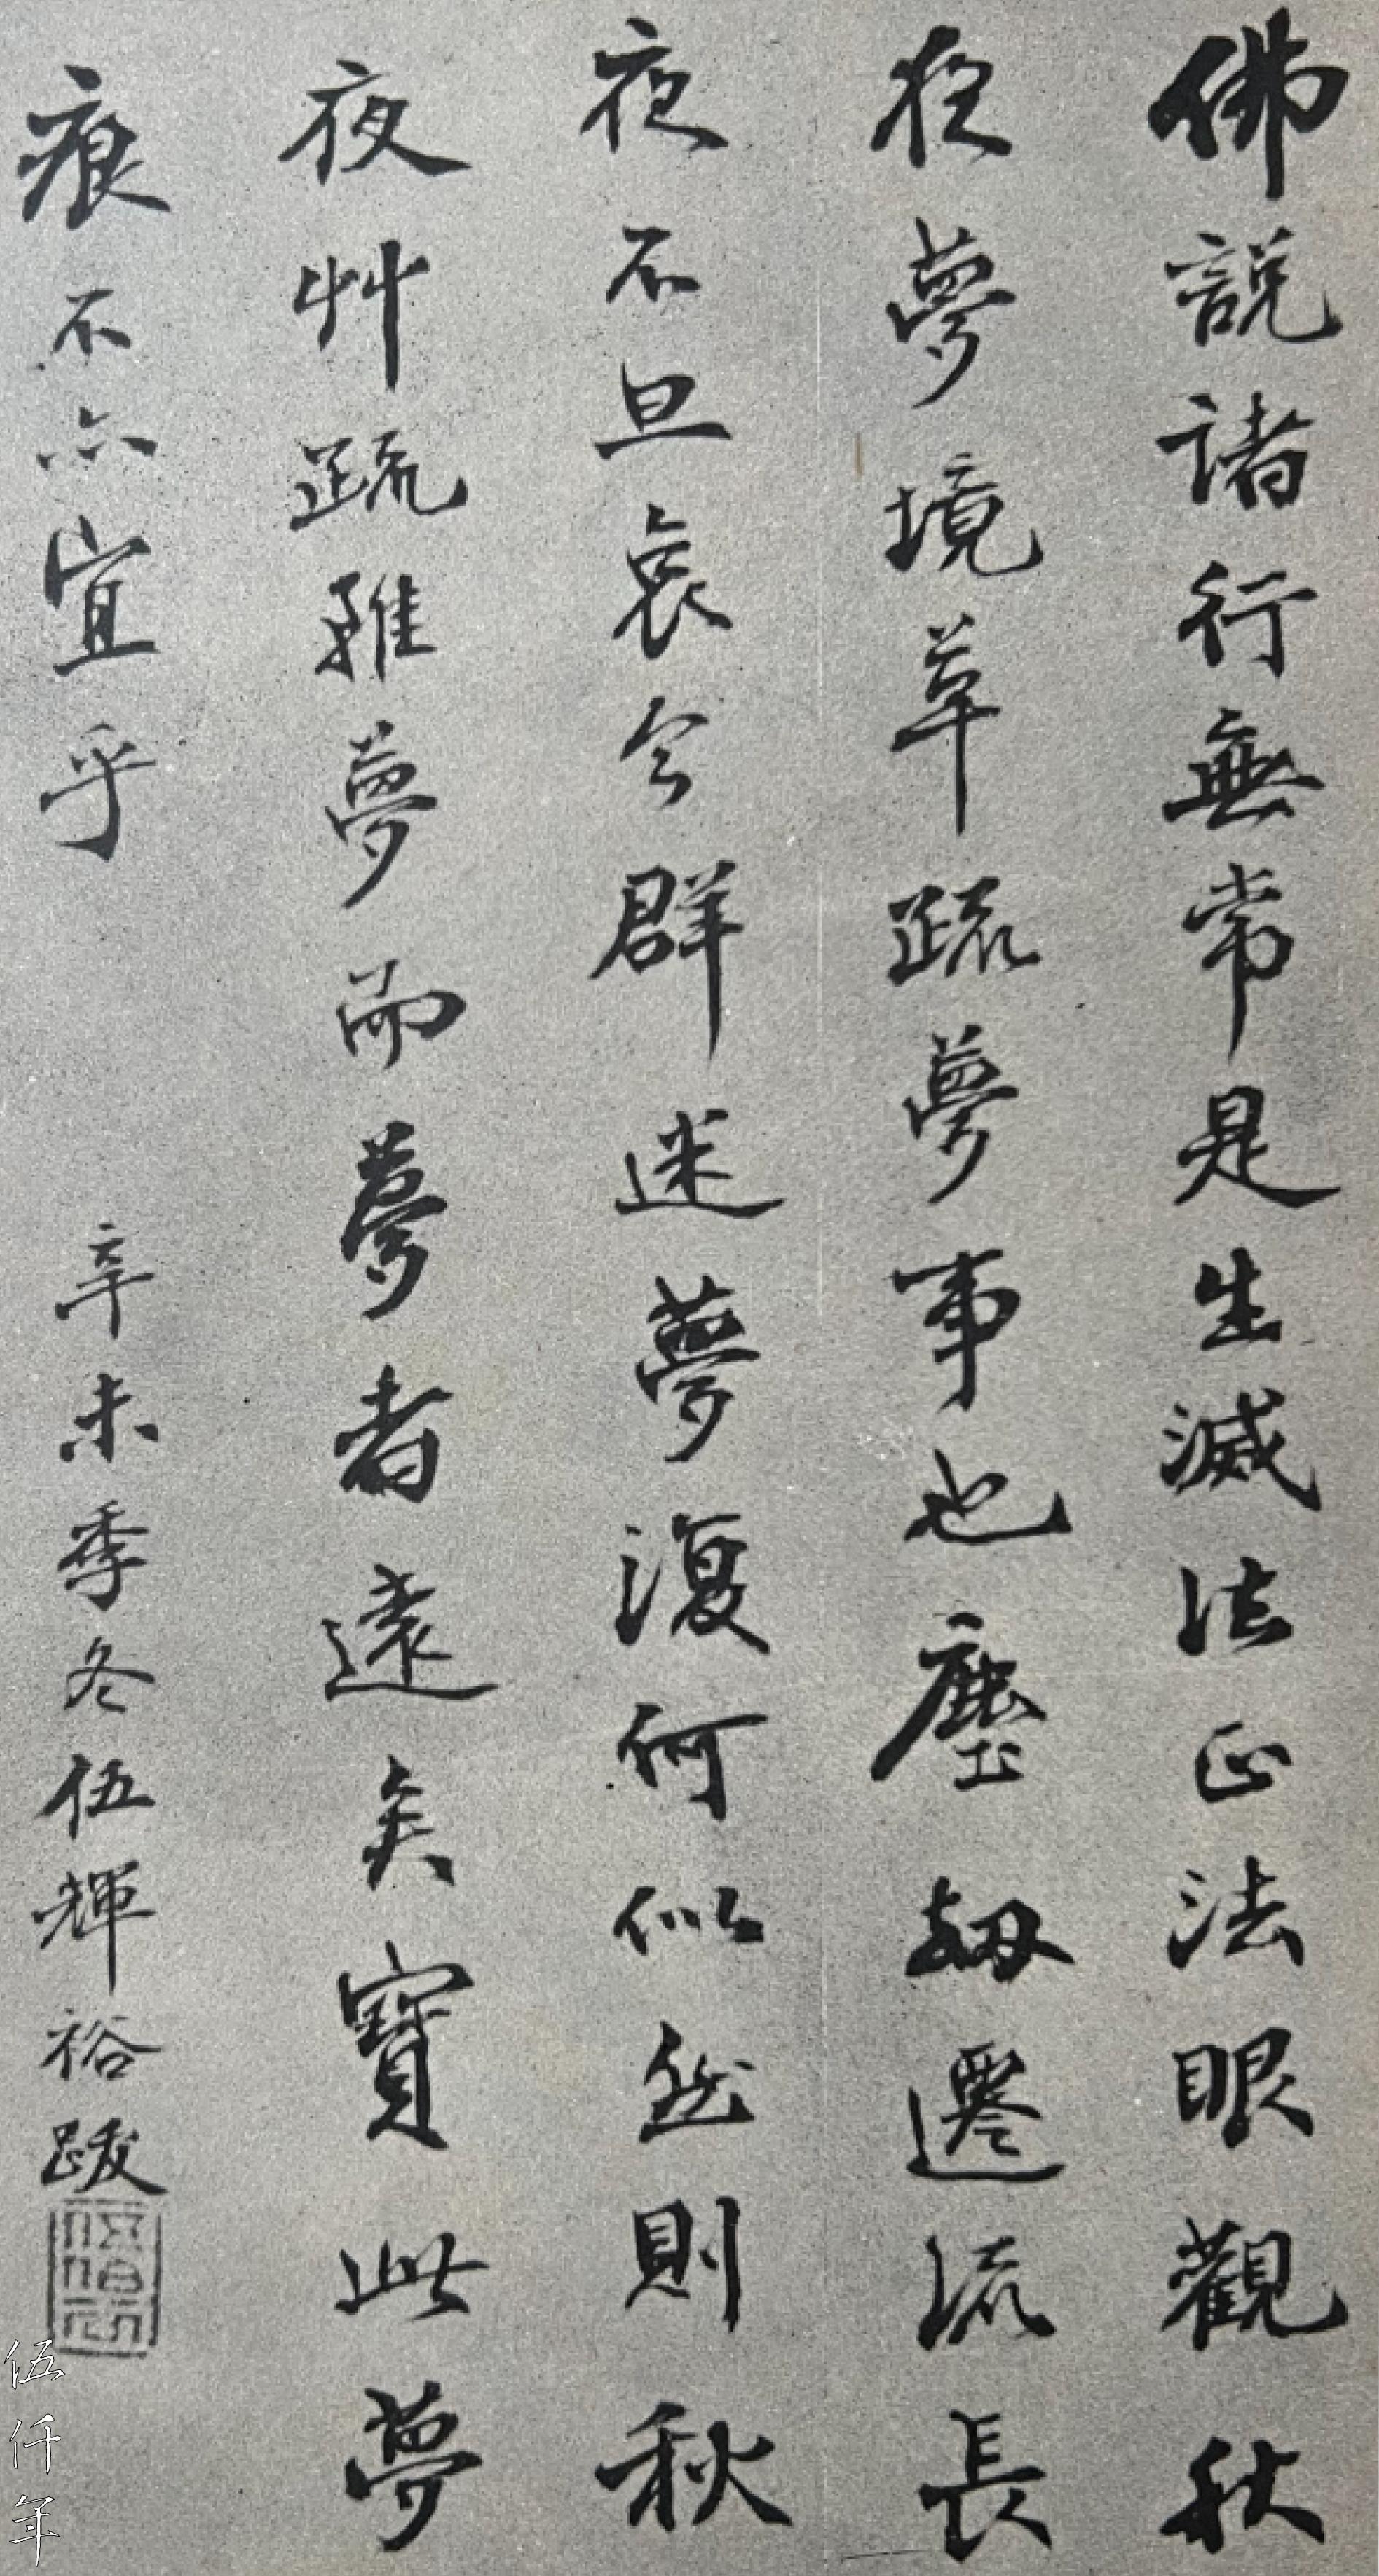 佛說諸行無常是生滅法正法眼觀秋
夜夢境草疏夢事也塵劫遷流長
夜不旦哀今群迷夢復何似然則秋
夜艸疏雖夢而夢者遠矣寶此夢
痕不亦宜乎
辛未季冬伍輝裕跋
伍仟年